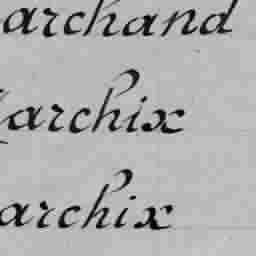 archand
archix
archix